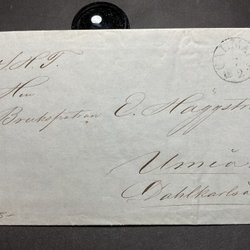 S.H.T.
Herr
Brukspatron E. Häggstr
Umeå
Dahlkarlså